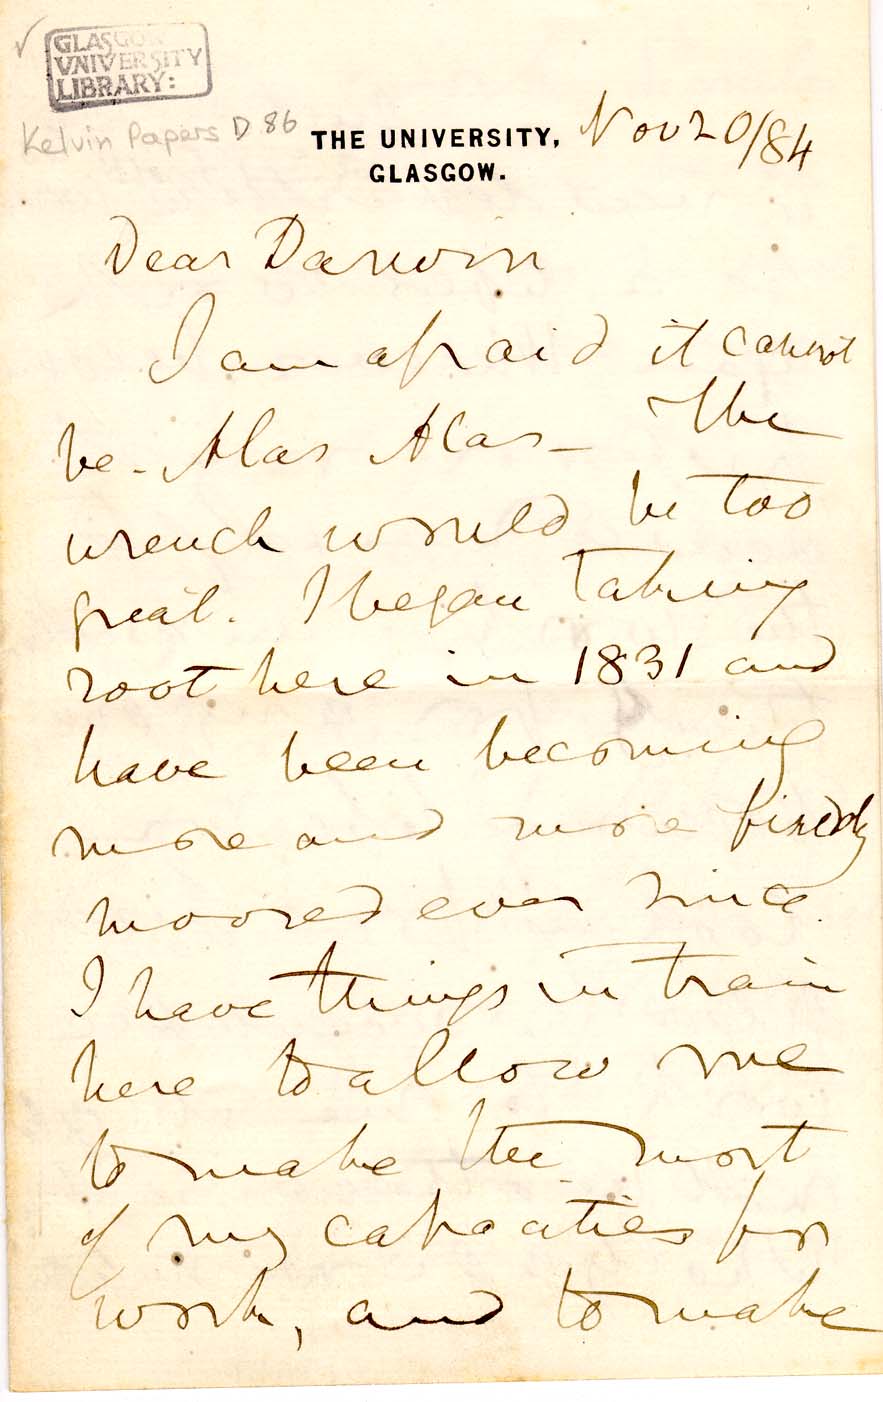 GLASGOW
VNIVERSITY
LIBRARY:
Kelvin Papers D 86
THE UNIVERSITY,
GLASGOW.
Nov 20/84
Dear Darwin
I am afraid it cannot
be - Alas Alas - The
wrench would be too
great. I began taking
root here in 1831 and
have been becoming
more and more fixedly
moored ever since.
I have things in train
here to allow me
to make the most
of my capacities for
work, and to make